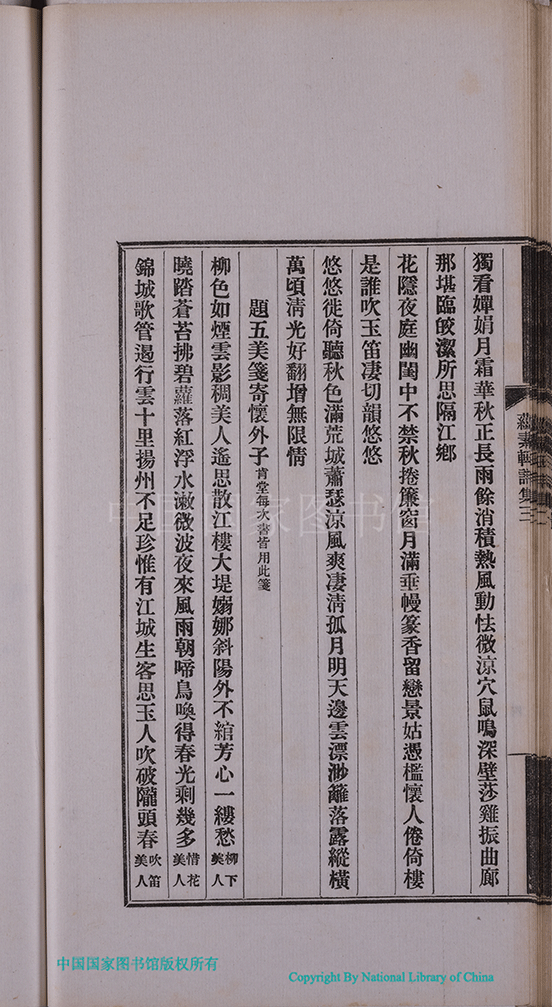 獨看嬋娟月霜華秋正長雨餘消積熱風動怯微涼穴鼠鳴深壁莎雞振曲廊
那堪臨皎潔所思隔江鄉
花隱夜庭幽閨中不禁秋捲簾窗月滿垂幔篆香留戀景姑憑檻懷人倦倚樓
是誰吹玉笛凄切韻悠悠
悠悠徙倚聽秋色滿荒城蕭瑟涼風爽凄淸孤月明天邊雲漂渺籬落露縱橫
萬頃淸光好翻增無限情
題五美箋寄懷外子肯堂每次書皆用此箋
柳色如煙雲影稠美人遙思散江樓大堤嫋娜斜陽外不綰芳心一縷愁柳下美人
曉踏蒼苔拂碧蘿落紅浮水漱微波夜來風雨朝啼鳥喚得春光剩幾多惜花美人
錦城歌管遏行雲十里揚州不足珍惟有江城生客思玉人吹破隴頭春吹笛美人
蘊素軒詩集三
中国国家图书馆
中国国家图书馆版权所有
Copyright By National Library of China